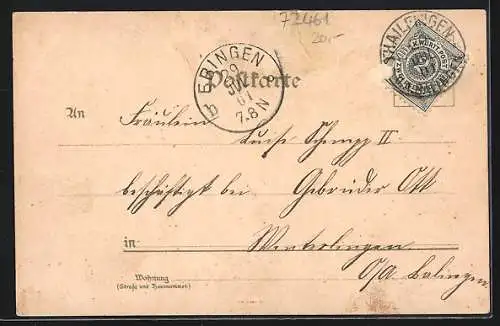 72461
20.-
THAILFINGEN
EBINGEN
29
JUL
01
7-8 N
b
Postkarte
An
Fräulein
Luise Schempp II
beschäftigt bei Gebrüder Ott
in Winterlingen
O/A. Balingen
Wohnung
(Straße und Hausnummer)